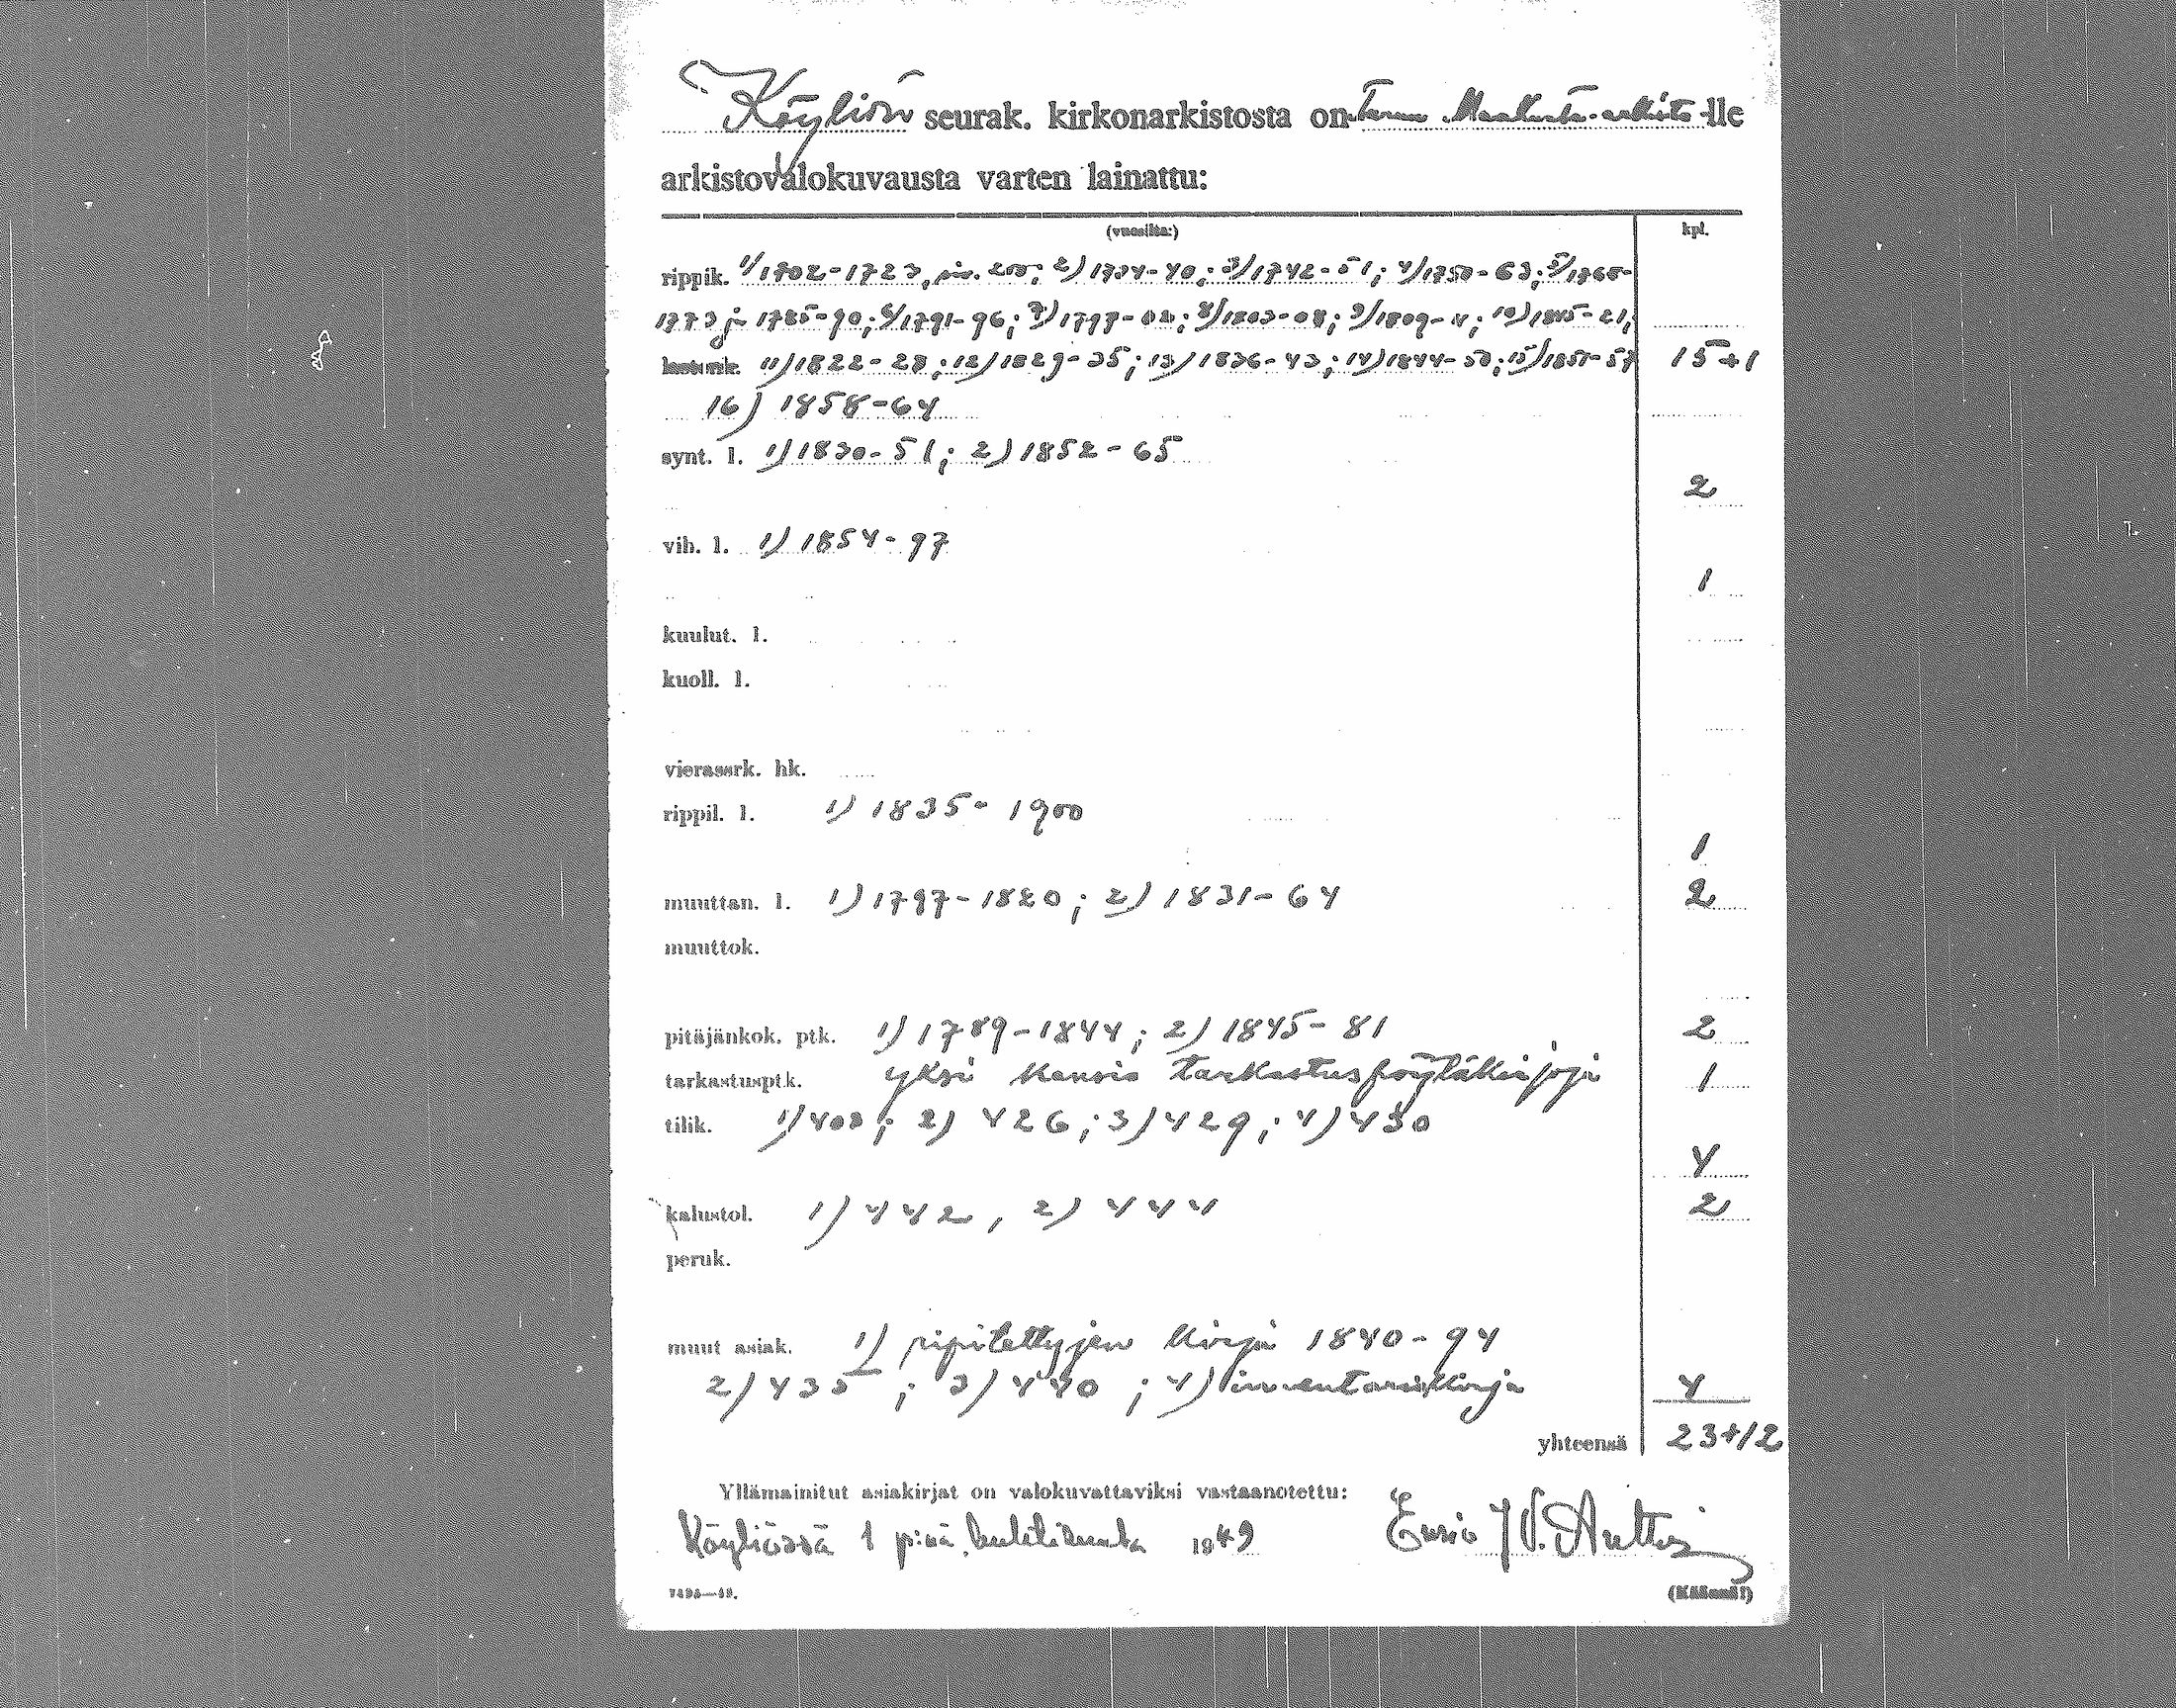 Köyliön seurak. kirkonarkistosta on Turun Maakunta-arkisto-lle
arkistovalokuvausta varten lainattu:
(vuosilta:) kpl.
rippik. 1/1702-1723, 2) 1734-40; 3/1742-51; 4/1750-63; 5/1765-
1773 ja 1785-90; 6/1791-96; 7)1797-02; 8/1803-08; 9/1809-14; 10)1815-21;
lastenk. 11)1822-28; 12)1829-35; 13)1836-43; 14)1844-50; 15)1851-57 15+1
16) 1858-64
synt. l. 1)1830-51; 2)1852-65
2
vih. l. 1) 1854-97
1
kuulut. l.
kuoll. l.
vierassrk. hk.
rippil. l. 1) 1835-1900
1
muuttan. l. 1) 1797-1820; 2) 1831-64 2
muuttok.
pitäjänkok. ptk. 1) 1789-1844; 2) 1845-81 2
tarkastusptk. yksi kansio tarkastuspöytäkirjoja 1
tilik. 1) 403; 2) 426; 3) 429; 4) 430
4
kalustol. 1) 442, 2) 444 2
peruk.
muut asiak. 1) ripitettyjen kirja 1840-94
2) 435; 3) 440; 4) inventariokirja 4
yhteensä 23+12
Yllämainitut asiakirjat on valokuvattaviksi vastaanotettu:
Köyliössä 1 p:nä huhtikuuta 1949
7495—48.